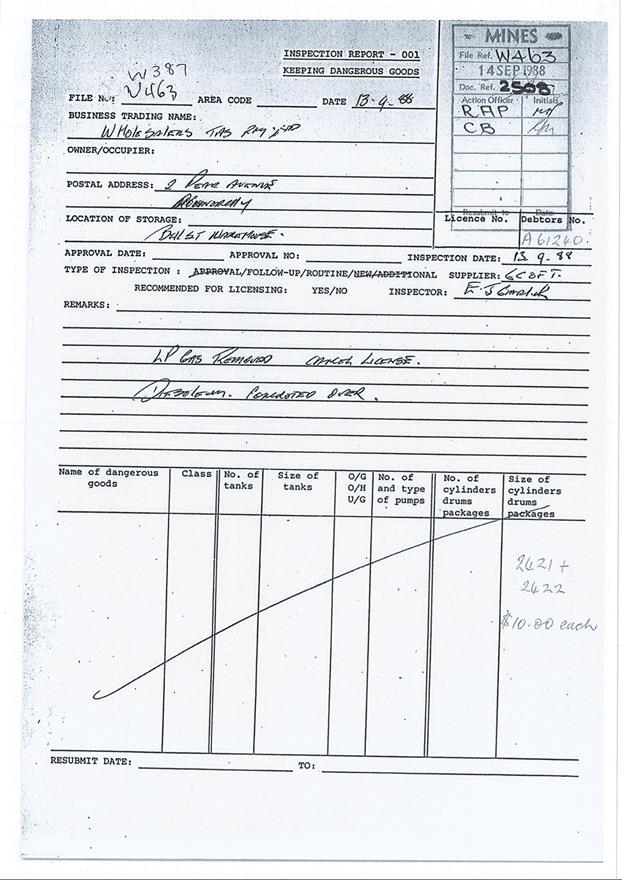 INSPECTION REPORT - 001
KEEPING DANGEROUS GOODS
MINES
File Ref. W463
14 SEP 1988
Doc. Ref. 2508
Action Officer Initials
RAP
CB
Resubmit to Date
W387
W463
FILE NO: AREA CODE DATE 13-9-88
BUSINESS TRADING NAME:
WHOLESALERS TAS PTY LTD
OWNER/OCCUPIER:
POSTAL ADDRESS: 2 PEAR AVENUE
LOCATION OF STORAGE:
WAREHOUSE.
Licence No. Debtors No.
A61240.
APPROVAL DATE: APPROVAL NO: INSPECTION DATE: 13.9.88
TYPE OF INSPECTION : APPROVAL/FOLLOW-UP/ROUTINE/NEW/ADDITIONAL SUPPLIER:
RECOMMENDED FOR LICENSING: YES/NO INSPECTOR: E.J
REMARKS:
LP GAS REMOVED CANCEL LICENSE.
OVER.
Name of dangerous goods Class No. of tanks Size of tanks O/G O/H U/G No. of and type of pumps No. of cylinders drums packages Size of cylinders drums packages
2421 +
2422
$10.00 each
RESUBMIT DATE: TO: